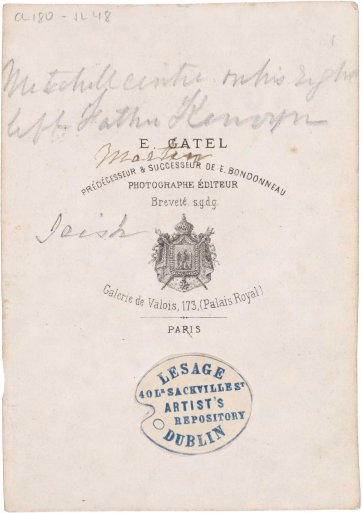 a180-JL 48
Mitchell centre on his right
left Father Kenyon
E. GATEL
Martin
PRÉDÉCESSEUR & SUCCESSEUR DE E. BONDONNEAU
PHOTOGRAPHE ÉDITEUR
Breveté. s.g.d.g.
Irish
Galerie de Valois, 173, (Palais Royal)
PARIS
LESAGE
40 LR SACKVILLE ST
ARTIST'S
REPOSITORY
DUBLIN